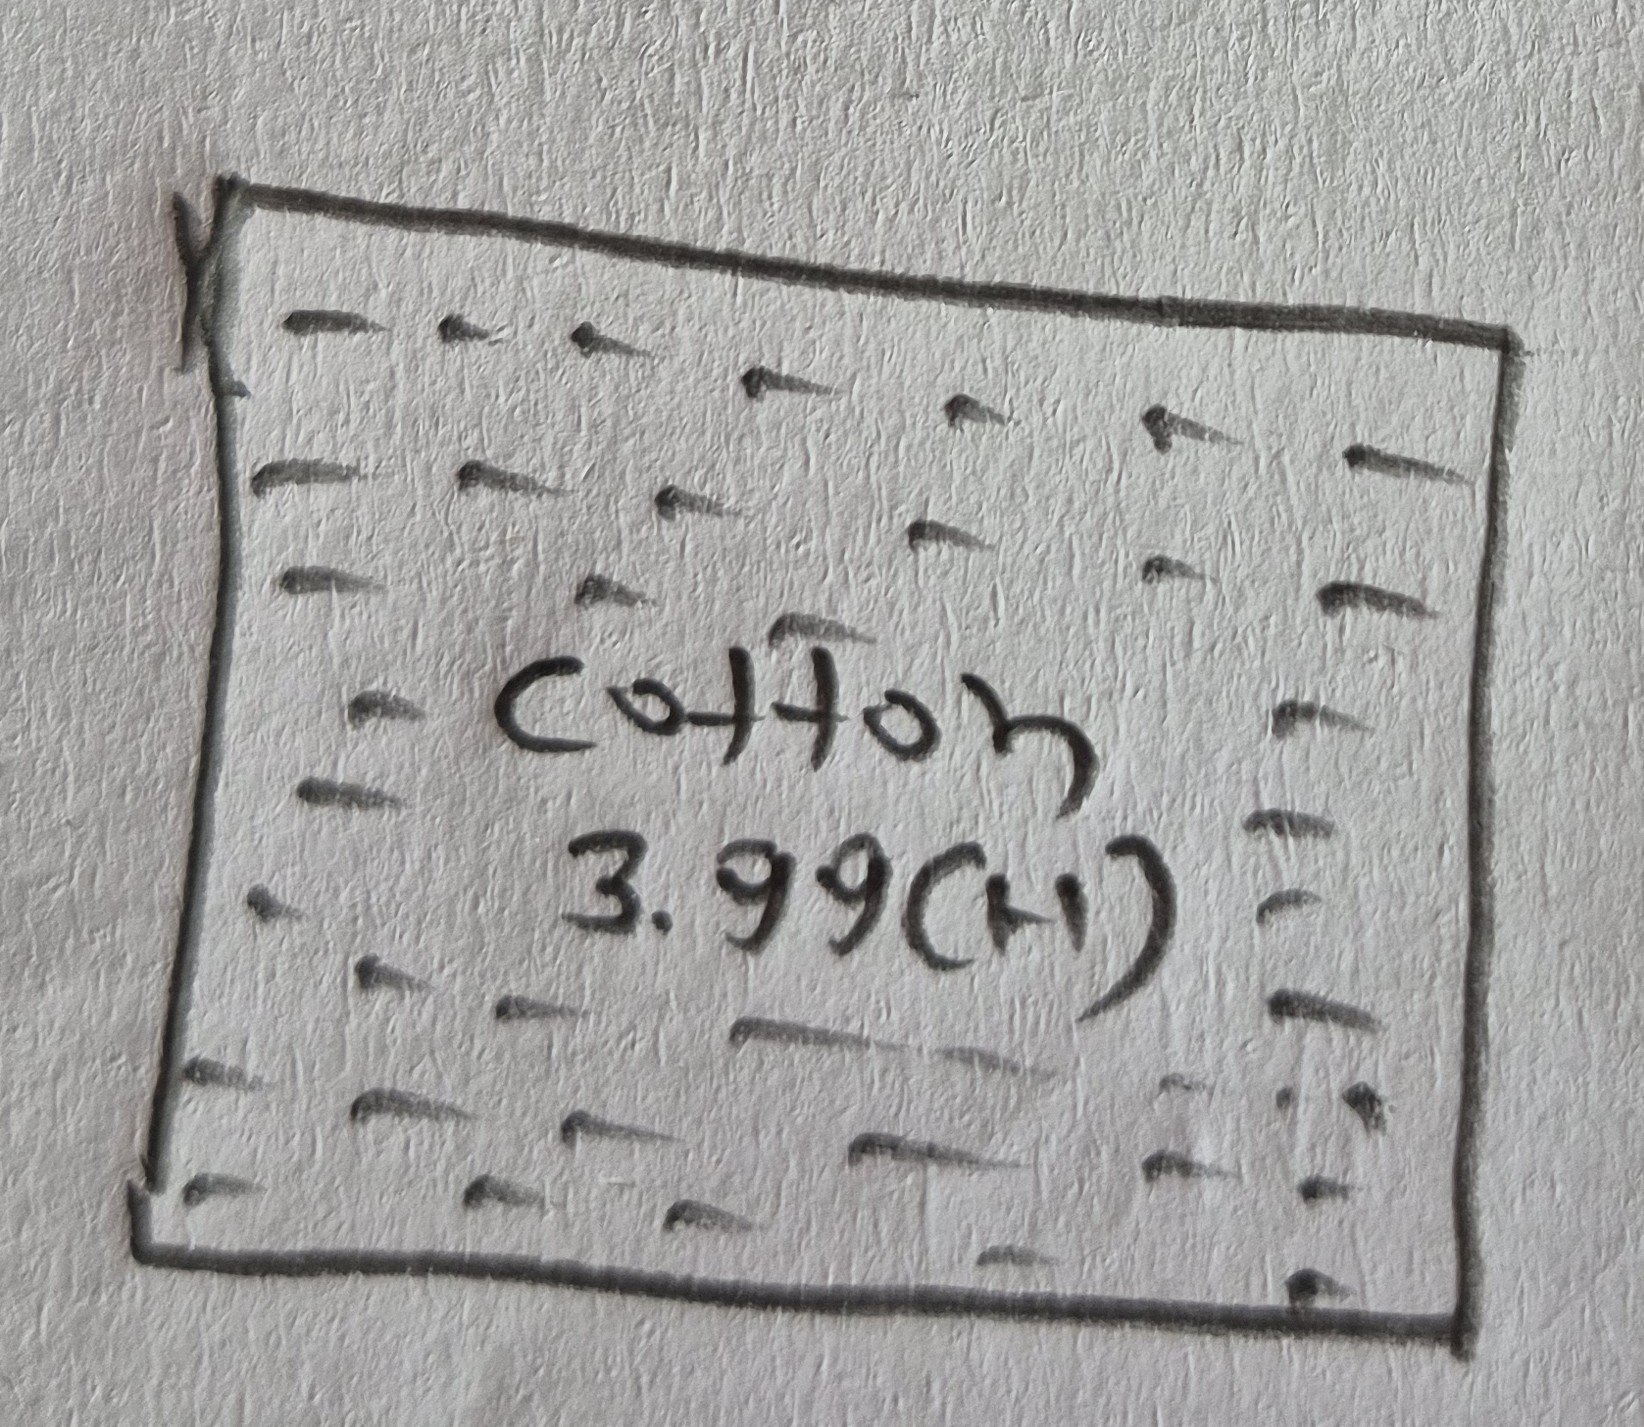 Cotton
3.99(H)